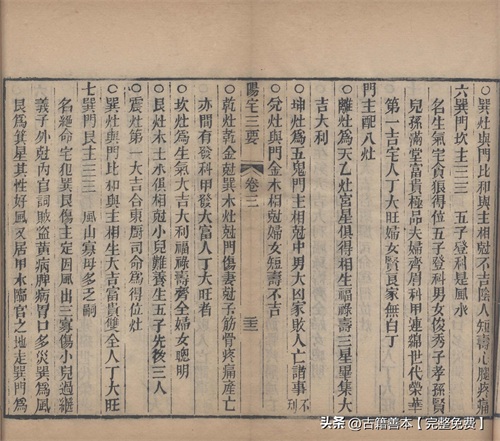 ○巽灶與門比和與主相尅不吉陰人短壽心腿疼痛
六巽門坎主三三　五子登科是風水
名生氣宅貪狼得位五子登科男女俊秀子孝孫賢
兒孫滿堂富貴極品夫婦齊眉科甲連綿世代榮華
第一吉宅人丁大旺婦女賢良家無白丁
門主配八灶
○離灶爲天乙灶宮星俱得相生福祿壽三星畢集大
吉大利
○坤灶爲五鬼門主相尅中男大凶家敗人亡諸事不利
○兌灶與門金木相尅婦女短壽不吉
陽宅三要　卷三　三三
○乾灶乾金尅巽木灶尅門傷妻尅子筋骨疼痛產亡
亦間有發科甲發大富人丁大旺者
○坎灶爲生氣大吉大利福祿壽齊全婦女聰明
○艮灶木土水俱相尅小兒難養生五子先後三人
○震灶第一大吉合東厨司命爲得位灶
○巽灶與門比和與主相生大吉富貴雙全人丁大旺
七巽門艮主三三　風山寡母多乏嗣
名絶命宅犯巽艮傷主定因風出三寡傷小兒過繼
義子外尅內官詞賊盜黃病脾病胃口多災巽爲風
艮爲箕星其性好風又居甲木陽官之地走巽門爲
头条@古籍善本【完整免费】